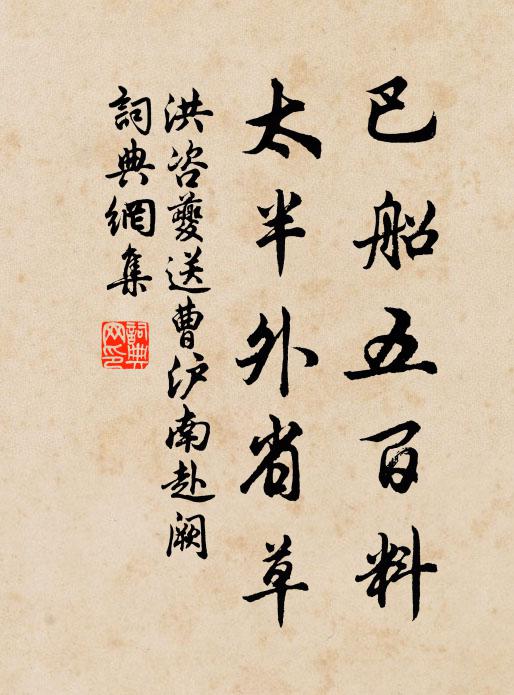 巴船五百料
太半外省草
洪咨夔送曹泸南赴阙
詞典網集
詞典網印